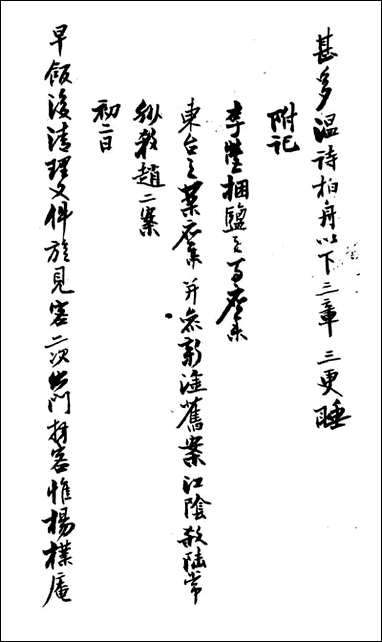 甚多溫詩柏舟以下三章三更睡
附記
李瑩捆鹽之事應奏
東台之業應奏并無新淦舊案江陰殺陸常
殺趙二案
初二日
早飯後清理文件旋見客二次出門拜客惟楊樸庵